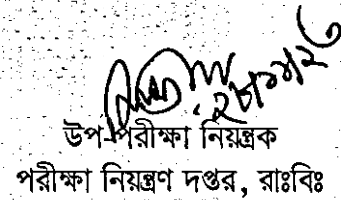 উপ-পরীক্ষা নিয়ন্ত্রক
পরীক্ষা নিয়ন্ত্রণ দপ্তর, রাঃবিঃ